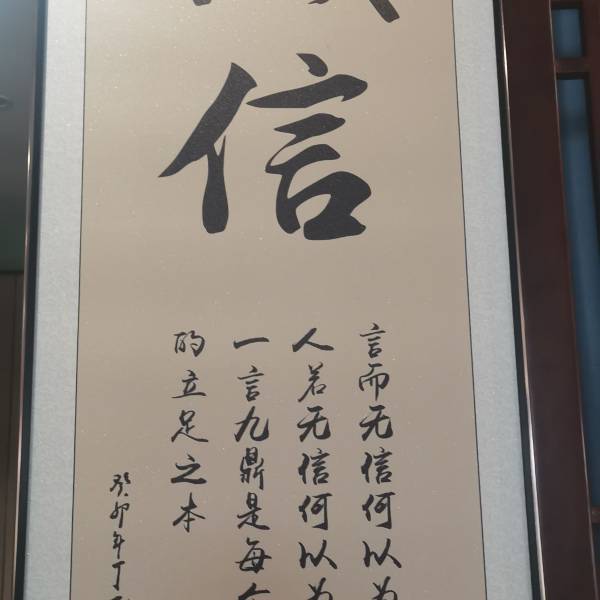 信
言而无信何以为
人若无信何以为
一言九鼎是每个
的立足之本
癸卯年丁